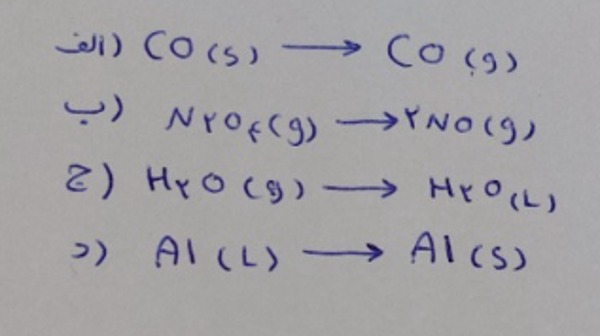 الف) CO (s) → CO (g)
ب) N۲O۴(g) → ۲NO(g)
ج) H۲O (g) → H۲O (L)
د) Al (L) → Al (s)